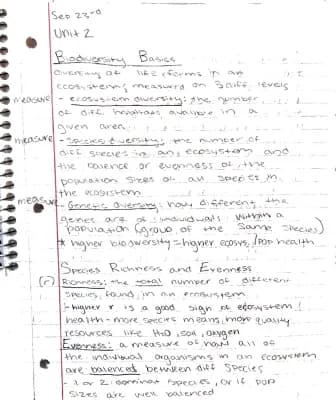 Sep 23rd
Unit 2
Biodiversity Basics
diversity of life forms in an
ecosystem; measured on 3 diff levels
measure - ecosystem diversity: the number
of diff habitats available in a
given area
measure - species diversity: the number of
diff species in an ecosystem and
the balence or evenness of the
population sizes of all species in
the ecosystem
measure - Genetic diversity: how different the
genes are of individuals within a
population (group of the same species)
* higher biodiversity = higher ecosys./pop health
Species Richness and Evenness
(r) Richness: the total number of different
species found in an ecosystem
- higher r is a good sign of ecosystem
health - more species means more quality
resources like H2O, soil, oxygen
Evenness: a measure of how all of
the individual organisms in an ecosystem
are balenced between diff species
- 1 or 2 dominat species, or if pop
sizes are well balenced